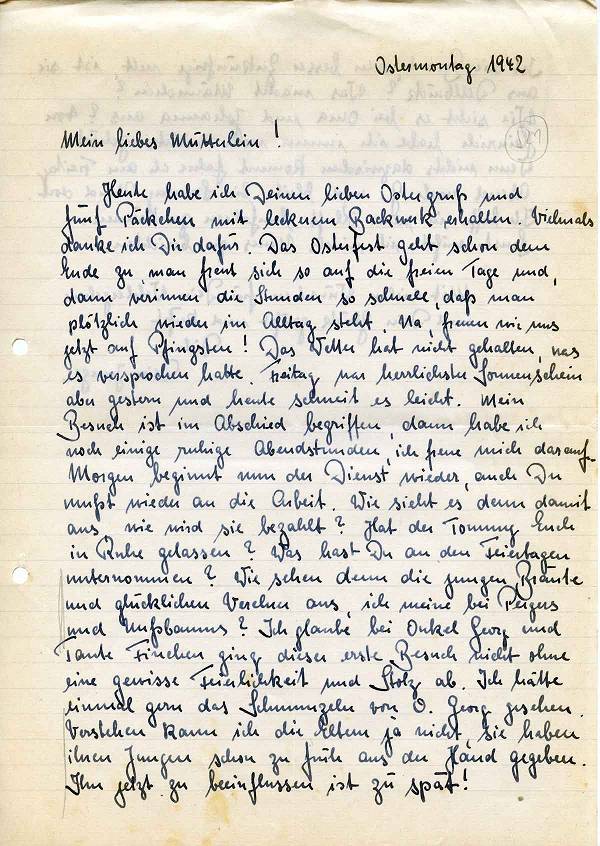 Ostermontag 1942
Mein liebes Mütterlein!
Heute habe ich Deinen lieben Ostergruß und
fünf Päckchen mit leckerem Backwerk erhalten. Vielmals
danke ich Dir dafür. Das Osterfest geht schon dem
Ende zu man freut sich so auf die freien Tage und,
dann verinnen die Stunden so schnell, daß man
plötzlich wieder im Alltag steht. Na, freuen wir uns
jetzt auf Pfingsten! Das Wetter hat nicht gehalten, was
es versprochen hatte. Freitag war herrlichster Sonnenschein
aber gestern und heute schneit es leicht. Mein
Besuch ist im Abschied begriffen, dann habe ich
noch einige ruhige Abendstunden, ich freue mich darauf.
Morgen beginnt nun der Dienst wieder, auch Du
mußt wieder an die Arbeit. Wie sieht es denn damit
aus wie wird sie bezahlt? Hat der Tommy Euch
in Ruhe gelassen? Was hast Du an den Feiertagen
unternommen? Wie sehen denn die jungen Bräute
und glücklichen Verlobten aus, ich meine bei
und Nußbaums? Ich glaube bei Onkel Georg und
Tante Finchen ging dieser erste Besuch nicht ohne
eine gewisse Feierlichkeit und Stolz ab. Ich hätte
einmal gern das Schmunzeln von O. Georg gesehen.
Verstehen kann ich die Eltern ja nicht, sie haben
ihren Jungen schon zu früh aus der Hand gegeben.
Ihn jetzt zu beeinflussen ist zu spät!